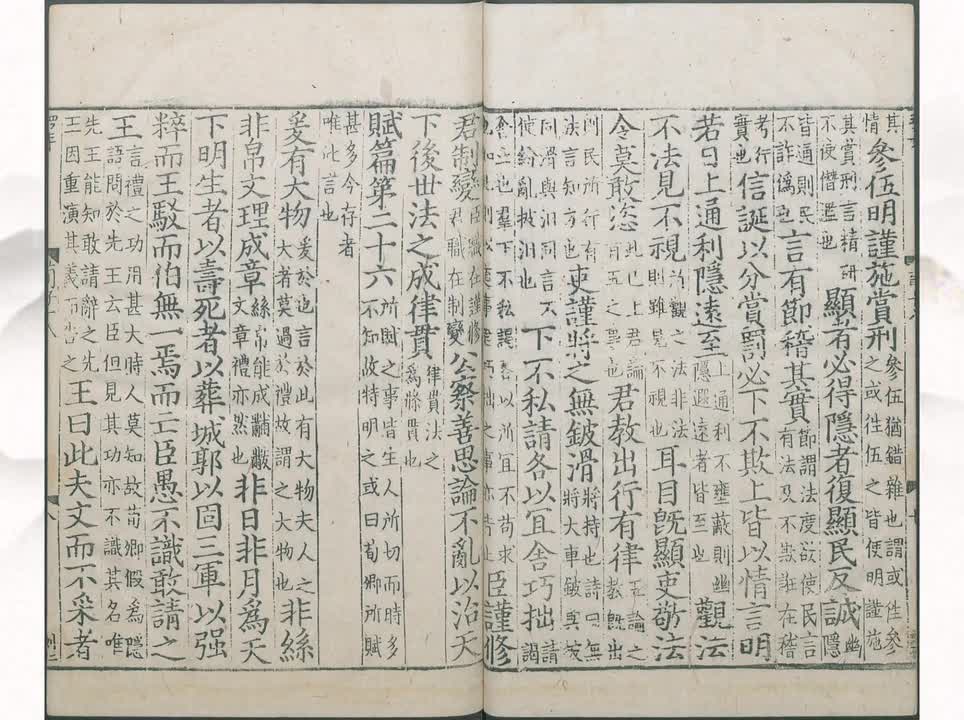 其
情
參伍明謹施賞刑
參伍猶錯雜也謂或往參
之或往伍之皆使明謹施
其賞刑言精研
不使僭濫也
顯者必得隱者復顯民反誠
幽
隱
皆通則民
不詐僞也
言有節稽其實
節謂法度欲使民言
有法及不欺誑在稽
考行
實也
信誕以分賞罰必下不欺上皆以情言明
若日上通利隱遠至
上通利不壅蔽則幽
隱遐遠者皆至也
觀法
不法見不視
所觀之法非法
則雖見不視也
耳目旣顯吏敬法
令莫敢恣
此已上君論
有五之事也
君教出行有律
五論之
教旣出
則民所行有
法言知方也
吏謹將之無鈹滑
將持也詩曰無
將大車鈹與披
同滑與汩同言不
使紛亂披汩也
下不私請各以宜舍巧拙
請
謁
羣下不私謁各以所宜不苟求
臣謹修
君制變
臣職在謹修
君職在制變
公察善思論不亂以治天
下後世法之成律貫
律貫法之
爲條貫也
賦篇第二十六
所賦之事皆生人所切而時多
不知故特明之或曰荀卿所賦
甚多今存者
唯此言也
爰有大物
爰於也言於此有大物夫人之
大者莫過於禮故謂之大物也
非絲
非帛文理成章
絲帛能成黼黻
文章禮亦然也
非日非月爲天
下明生者以壽死者以葬城郭以固三軍以强
粹而王駁而伯無一焉而亡臣愚不識敢請之
王
言禮之功用甚大時人莫知故荀卿假爲隱
語問於先王玄臣但見其功亦不識其名唯
先王能知敢請辭之先
王因重演其義而告之
王曰此夫文而不采者